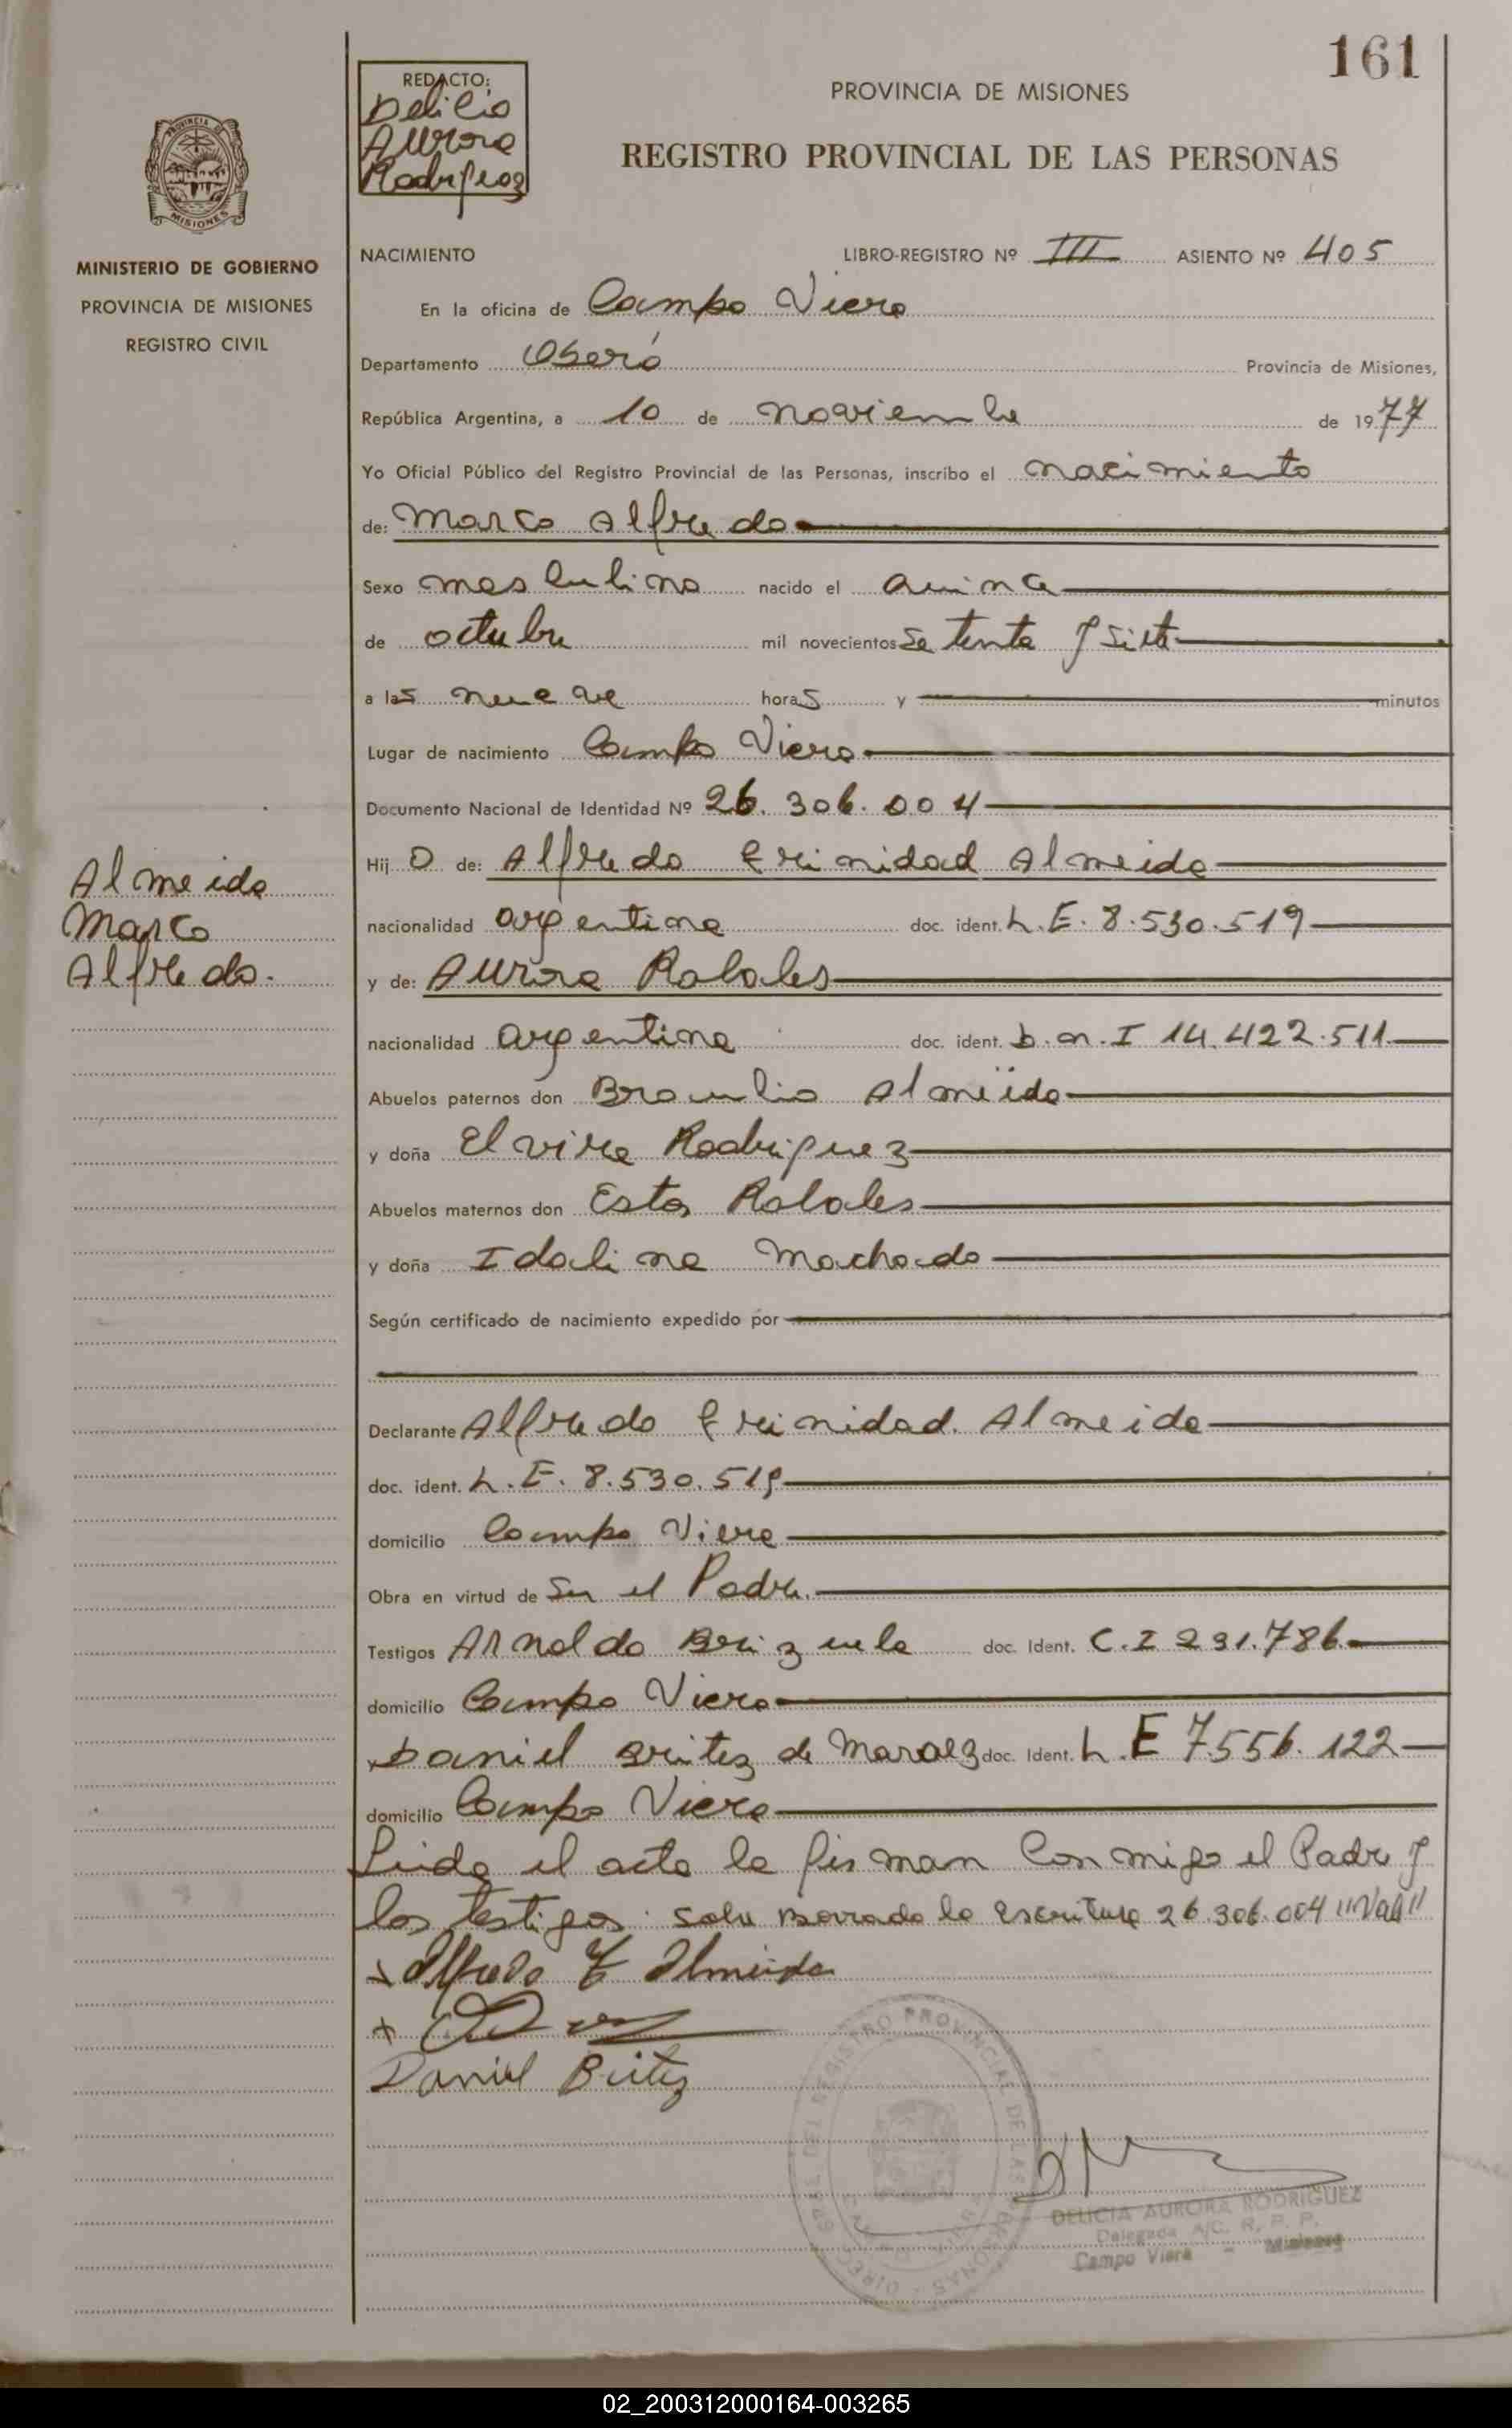 161
REDACTO:
Delicia
Aurora
Rodriguez
PROVINCIA DE MISIONES
REGISTRO PROVINCIAL DE LAS PERSONAS
PROVINCIA DE
MISIONES
MINISTERIO DE GOBIERNO
PROVINCIA DE MISIONES
REGISTRO CIVIL
NACIMIENTO LIBRO-REGISTRO Nº III ASIENTO Nº 405
En la oficina de Campo Viera
Departamento Oberá Provincia de Misiones,
República Argentina, a 10 de noviembre de 1977
Yo Oficial Público del Registro Provincial de las Personas, inscribo el nacimiento
de: Marco Alfredo
Sexo masculino nacido el quince
de octubre mil novecientos setenta y siete
a las nueve horas y minutos
Lugar de nacimiento Campo Viera
Documento Nacional de Identidad Nº 26.306.004
Almeida
Marco
Alfredo.
Hijo de: Alfredo Trinidad Almeida
nacionalidad argentina doc. ident. L.E. 8.530.519
y de: Aurora Rabales
nacionalidad argentina doc. ident. D.N.I 14.422.511
Abuelos paternos don Braulio Almeida
y doña Elvira Rodriguez
Abuelos maternos don Rabales
y doña Idalina Machado
Según certificado de nacimiento expedido por
Declarante Alfredo Trinidad Almeida
doc. ident. L.E. 8.530.519
domicilio Campo Viera
Obra en virtud de Ser el Padre.
Testigos Arnoldo Brizuela doc. Ident. C.I 231.786
domicilio Campo Viera
Daniel Britez de doc. Ident. L.E 7556.122
domicilio Campo Viera
Leida el acta la firman conmigo el Padre y
los testigos. Sobre Borrado la escritura 26.306.004 "Vale"
Alfredo T Almeida
Daniel Britez
DELICIA AURORA RODRIGUEZ
Delegada A/C. R. P. P.
Campo Viera - Misiones
02_200312000164-003265